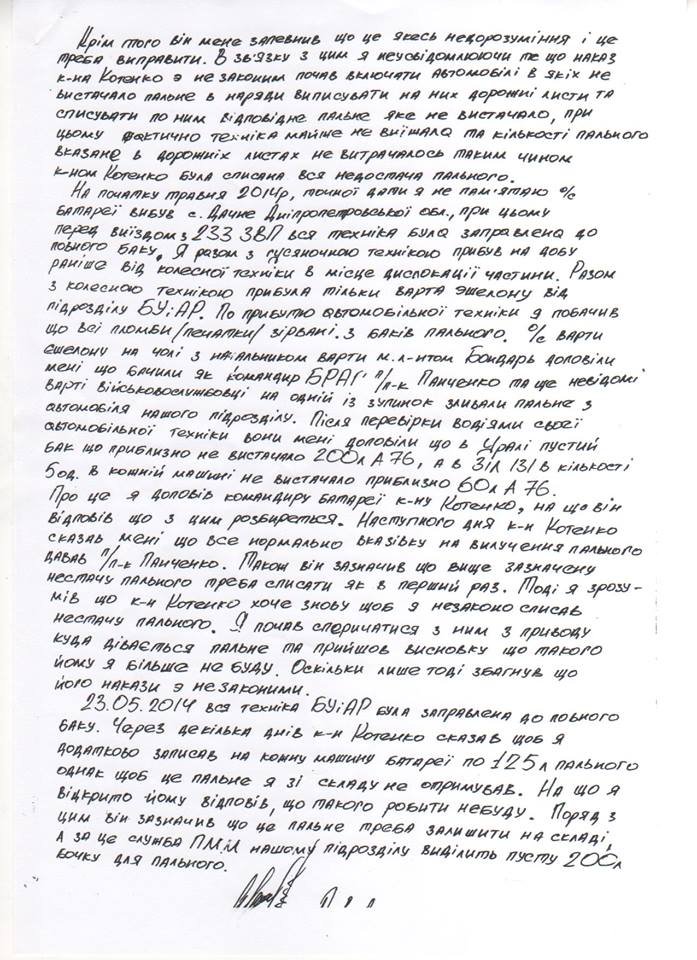 Крім того він мене запевнив що це якесь недорозуміння і це
треба виправити. В зв'язку з цим я неусвідомлюючи те що наказ
к-на Котенко э не законим почав включати автомобілі в яких не
вистачало пальне в наряди виписувати на них дорожні листи та
списувати по ним відповідне пальне яке не вистачало, при
цьому фактично техніка майше не виїшала та кількості пального
вказане в дорожніх листах не витрачалось таким чином
к-ном Котенко була списана вся недостача пального.
На початку травня 2014р, точної дати я не пам'ятаю о/с
батареї вибув с. Дачне Дніпропетровської обл., при цьому
перед виїздом з 233 ЗВП вся техніка була заправлена до
повного баку. Я разом з гусяночною технікою прибув на добу
раніше від колесної техніки в місце дислокації частини. Разом
з колесною технікою прибула тільки варта эшелону від
підрозділу БУіАР. По прибутю автомобільної техніки я побачив
що всі пломби/печатки/ зірвані з баків пального. о/с варти
єшелону на чолі з начальником варти м.л-нтом Бондарь доповіли
мені що бачили як командир БРАГ п/п-к Панченко та ще невідомі
варті військовослужбовці на одній із зупинок зливали пальне з
автомобіля нашого підрозділу. Після перевірки водіями своєї
автомобільної техніки вони мені доповіли що в Уралі пустий
бак що приблизно не вистачало 200л А 76, а в Зіл 131 в кількості
5од. в кожній машині не вистачало приблизно 60л А 76.
Про це я доповів командиру батареї к-ну Котенко, на що він
відповів що з цим розбиреться. Наступного дня к-н Котенко
сказав мені що все нормально вказівку на вилучення пального
давав п/п-к Панченко. Також він зазначив що вище зазначену
нестачу пального треба списати як в перший раз. Тоді я зрозу-
мів що к-н Котенко хоче знову щоб я незаконо списав
нестачу пального. Я почав сперичатися з ним з приводу
куда дівається пальне та прийшов висновку що такого
йому я більше не буду. Оскільки лише тоді збагнув що
його накази э незаконими.
23.05.2014 вся техніка БУіАР була заправлена до повного
баку. Через декілька днів к-н Котенко сказав щоб я
додатково записав на кожну машину батареї по 125л пального
однак щоб це пальне я зі складу не отримував. На що я
відкрито йому відповів, що такого робити небуду. Поряд з
цим він зазначив що це пальне треба залишити на складі,
а за це служба ПММ нашому підрозділу виділить пусту 200л
бочку для пального.